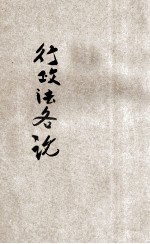 行政法各论